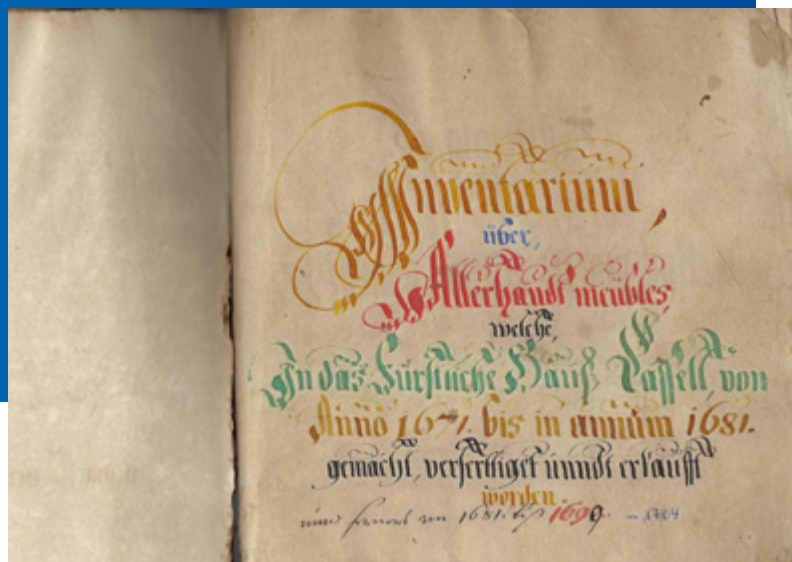 Inventarium,
über,
Allerhandt meübles,
welche,
In das Fürstliche Hauß Cassell, von
Anno 1671. bis in annum 1681.
gemacht, verfertiget unndt erkaufft
worden.
1681. biß 1699. – 1704